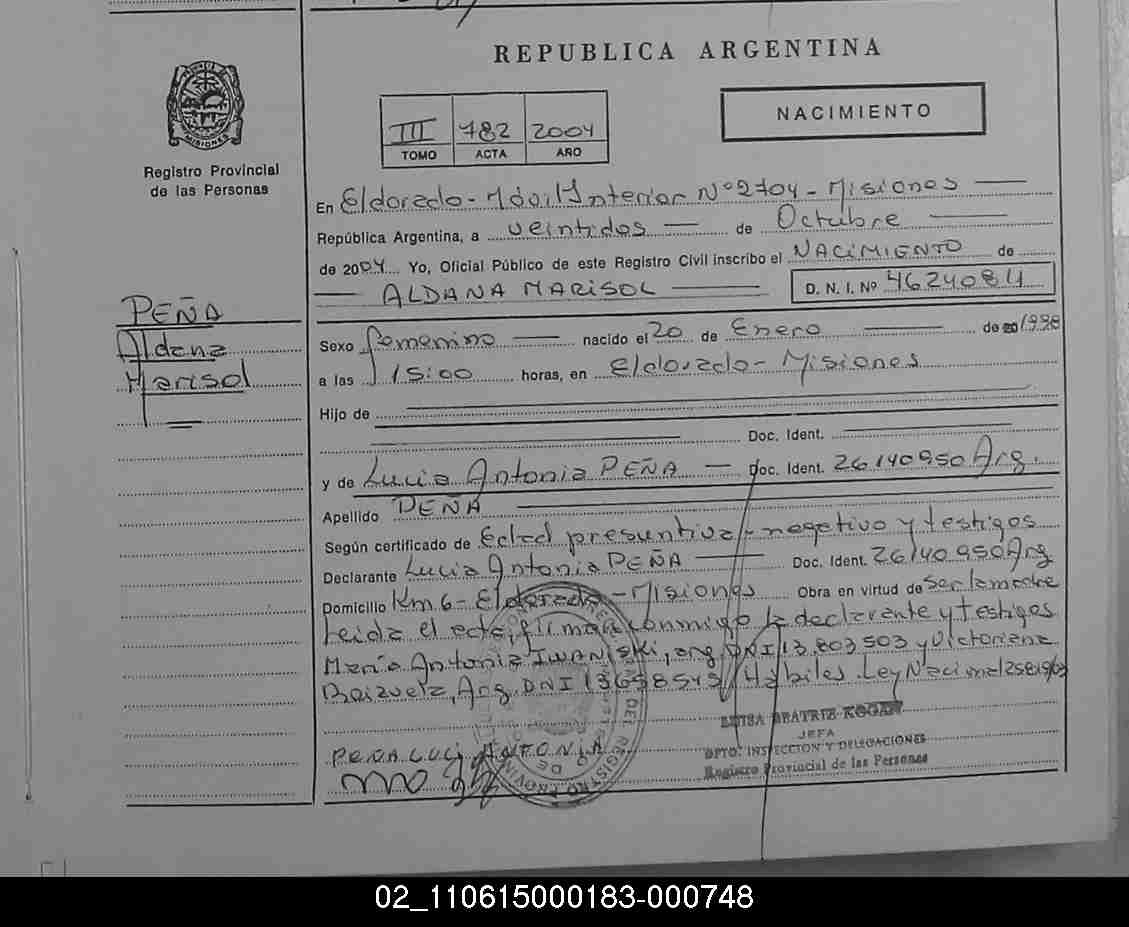 REPUBLICA ARGENTINA
NACIMIENTO
MISIONES
Registro Provincial
de las Personas
III 782 2004
TOMO ACTA AÑO
En Eldorado - Móvil Interior Nº 2704 - Misiones
República Argentina, a veintidos de Octubre
de 2004 Yo, Oficial Público de este Registro Civil inscribo el NACIMIENTO de
ALDANA MARISOL D. N. I. Nº
PEÑA
Aldana
Marisol
Sexo femenino nacido el 20 de Enero de 1998
a las 15:00 horas, en Eldorado - Misiones
Hijo de
Doc. Ident.
y de Lucia Antonia PEÑA Doc. Ident. 26140950 Arg.
Apellido PEÑA
Según certificado de Edad presuntiva - negativo y testigos
Declarante Lucia Antonia PEÑA Doc. Ident. 26140950 Arg
Domicilio Km 6 - Eldorado - Misiones Obra en virtud de Ser la madre
Leida el acta, firman conmigo la declarante y testigos
María Antonia IWANISKI, arg. DNI 13.803503 y Victoriana
Arg. DNI Hábiles. Ley Nacional
LUISA BEATRIZ KOGAN
JEFA
DPTO. INSPECCION Y DELEGACIONES
Registro Provincial de las Personas
PEÑA LUCI ANTONIA
02_110615000183-000748